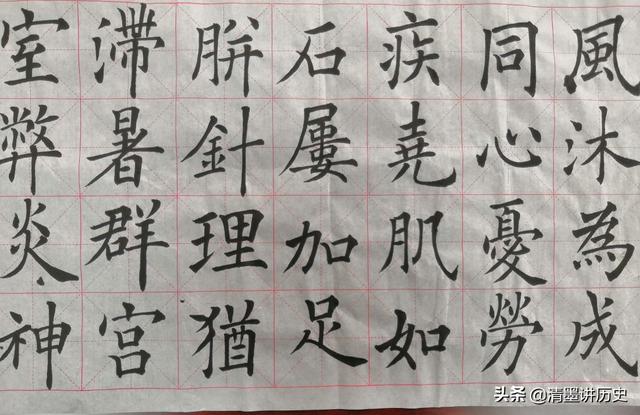 風沐為成
同心憂勞
疾堯肌如
石屢加足
胼針理猶
滯暑群宮
室弊炎神
头条 @清墨讲历史